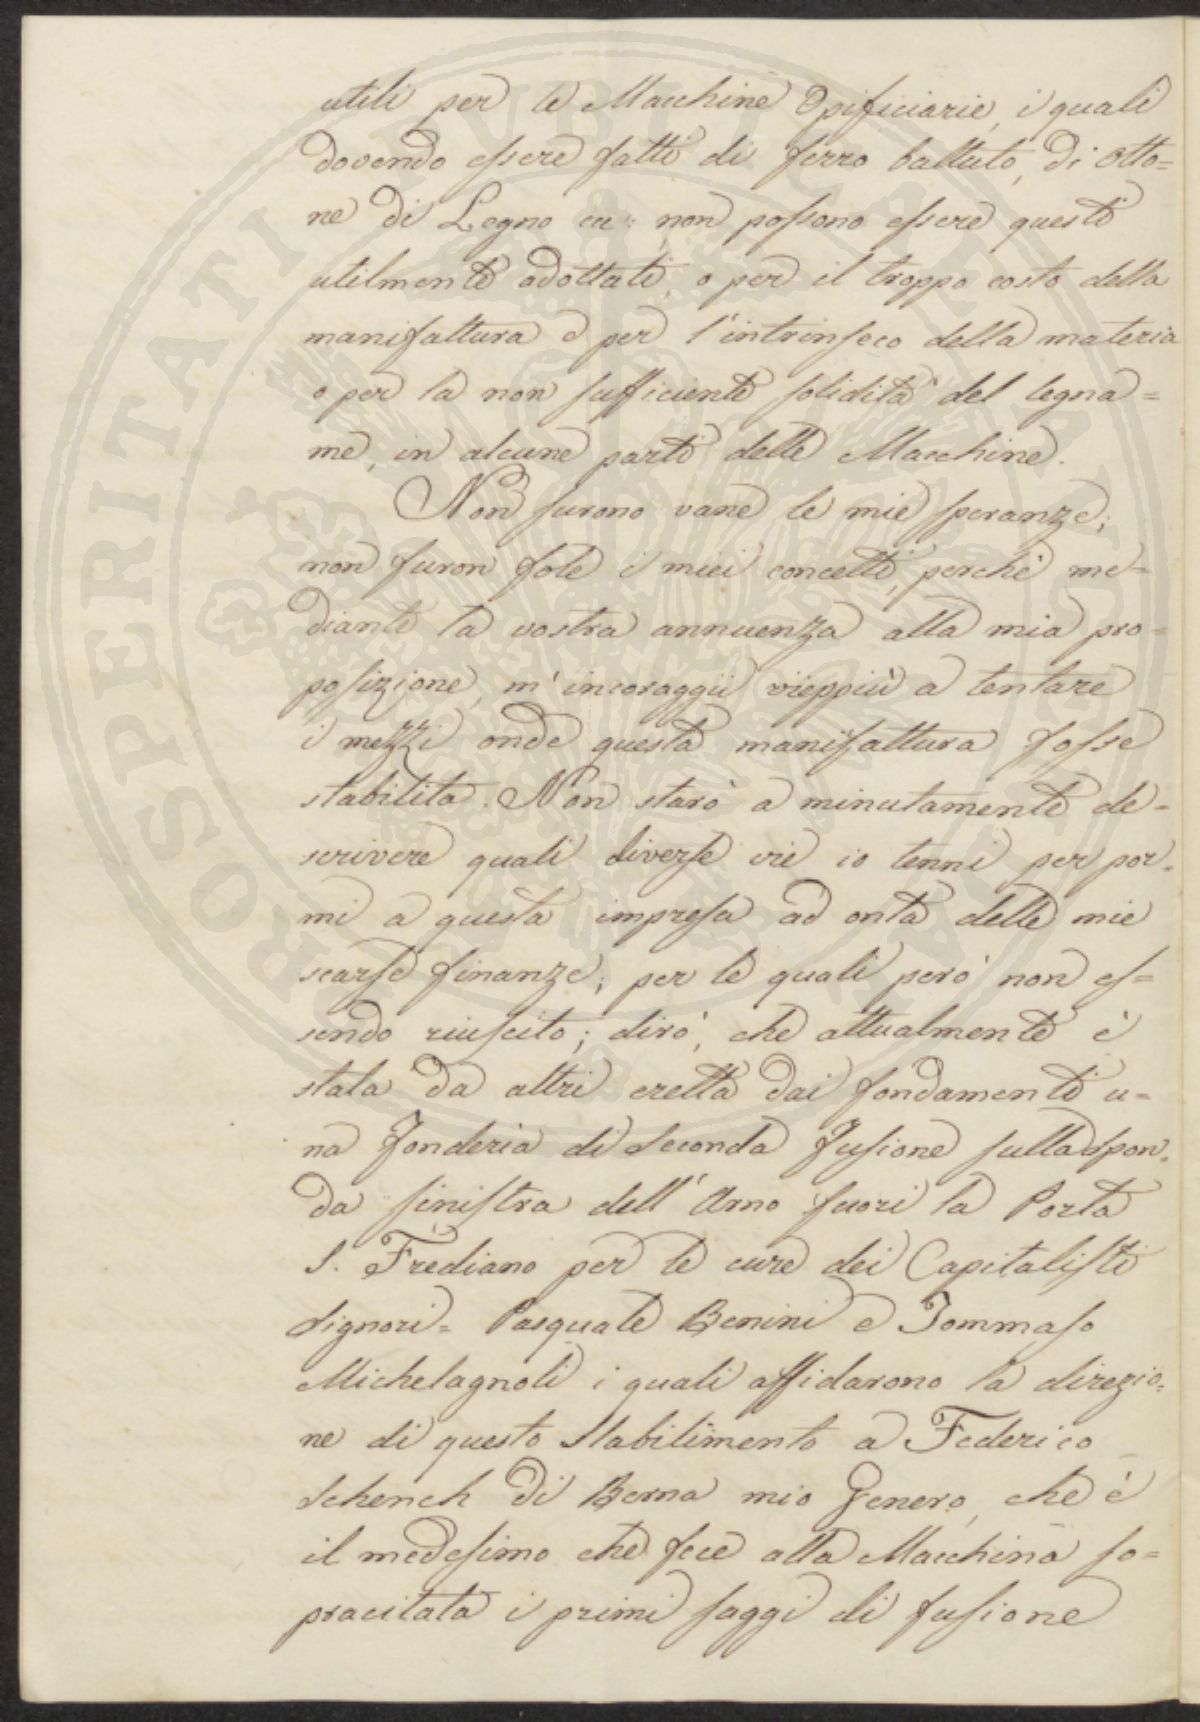 utili per le Macchine Opificiarie, i quali
dovendo essere fatti di ferro battuto, di Otto=
ne di Legno ec: non possono essere questi
utilmente adottati, o per il troppo costo della
manifattura o per l'intrinseco della materia
o per la non sufficiente solidità del legna=
me, in alcune parti delle Macchine.
Non furono vane le mie speranze;
non furon fole i miei concetti, perchè me-
diante la vostra annuenza alla mia pro-
posizione, m'incoraggii vieppiù a tentare
i mezzi onde questa manifattura fosse
stabilita. Non starò a minutamente de-
scrivere quali diverse vie io tenni per por-
mi a questa impresa ad onta delle mie
scarse finanze; per le quali però non es=
sendo riuscito; dirò, che attualmente è
stata da altri eretta dai fondamenti u-
na Fonderia di Seconda Fusione sulla Spon=
da sinistra dell'Arno fuori la Porta
S. Frediano per le cure dei Capitalisti
Signori= Pasquale Benini e Tommaso
Michelagnoli i quali affidarono la direzio=
ne di questo Stabilimento a Federico
Schench di Berna mio Genero, che è
il medesimo che fece alla Macchina so=
pracitata i primi saggi di fusione
PROSPERITATI PUBLICAE